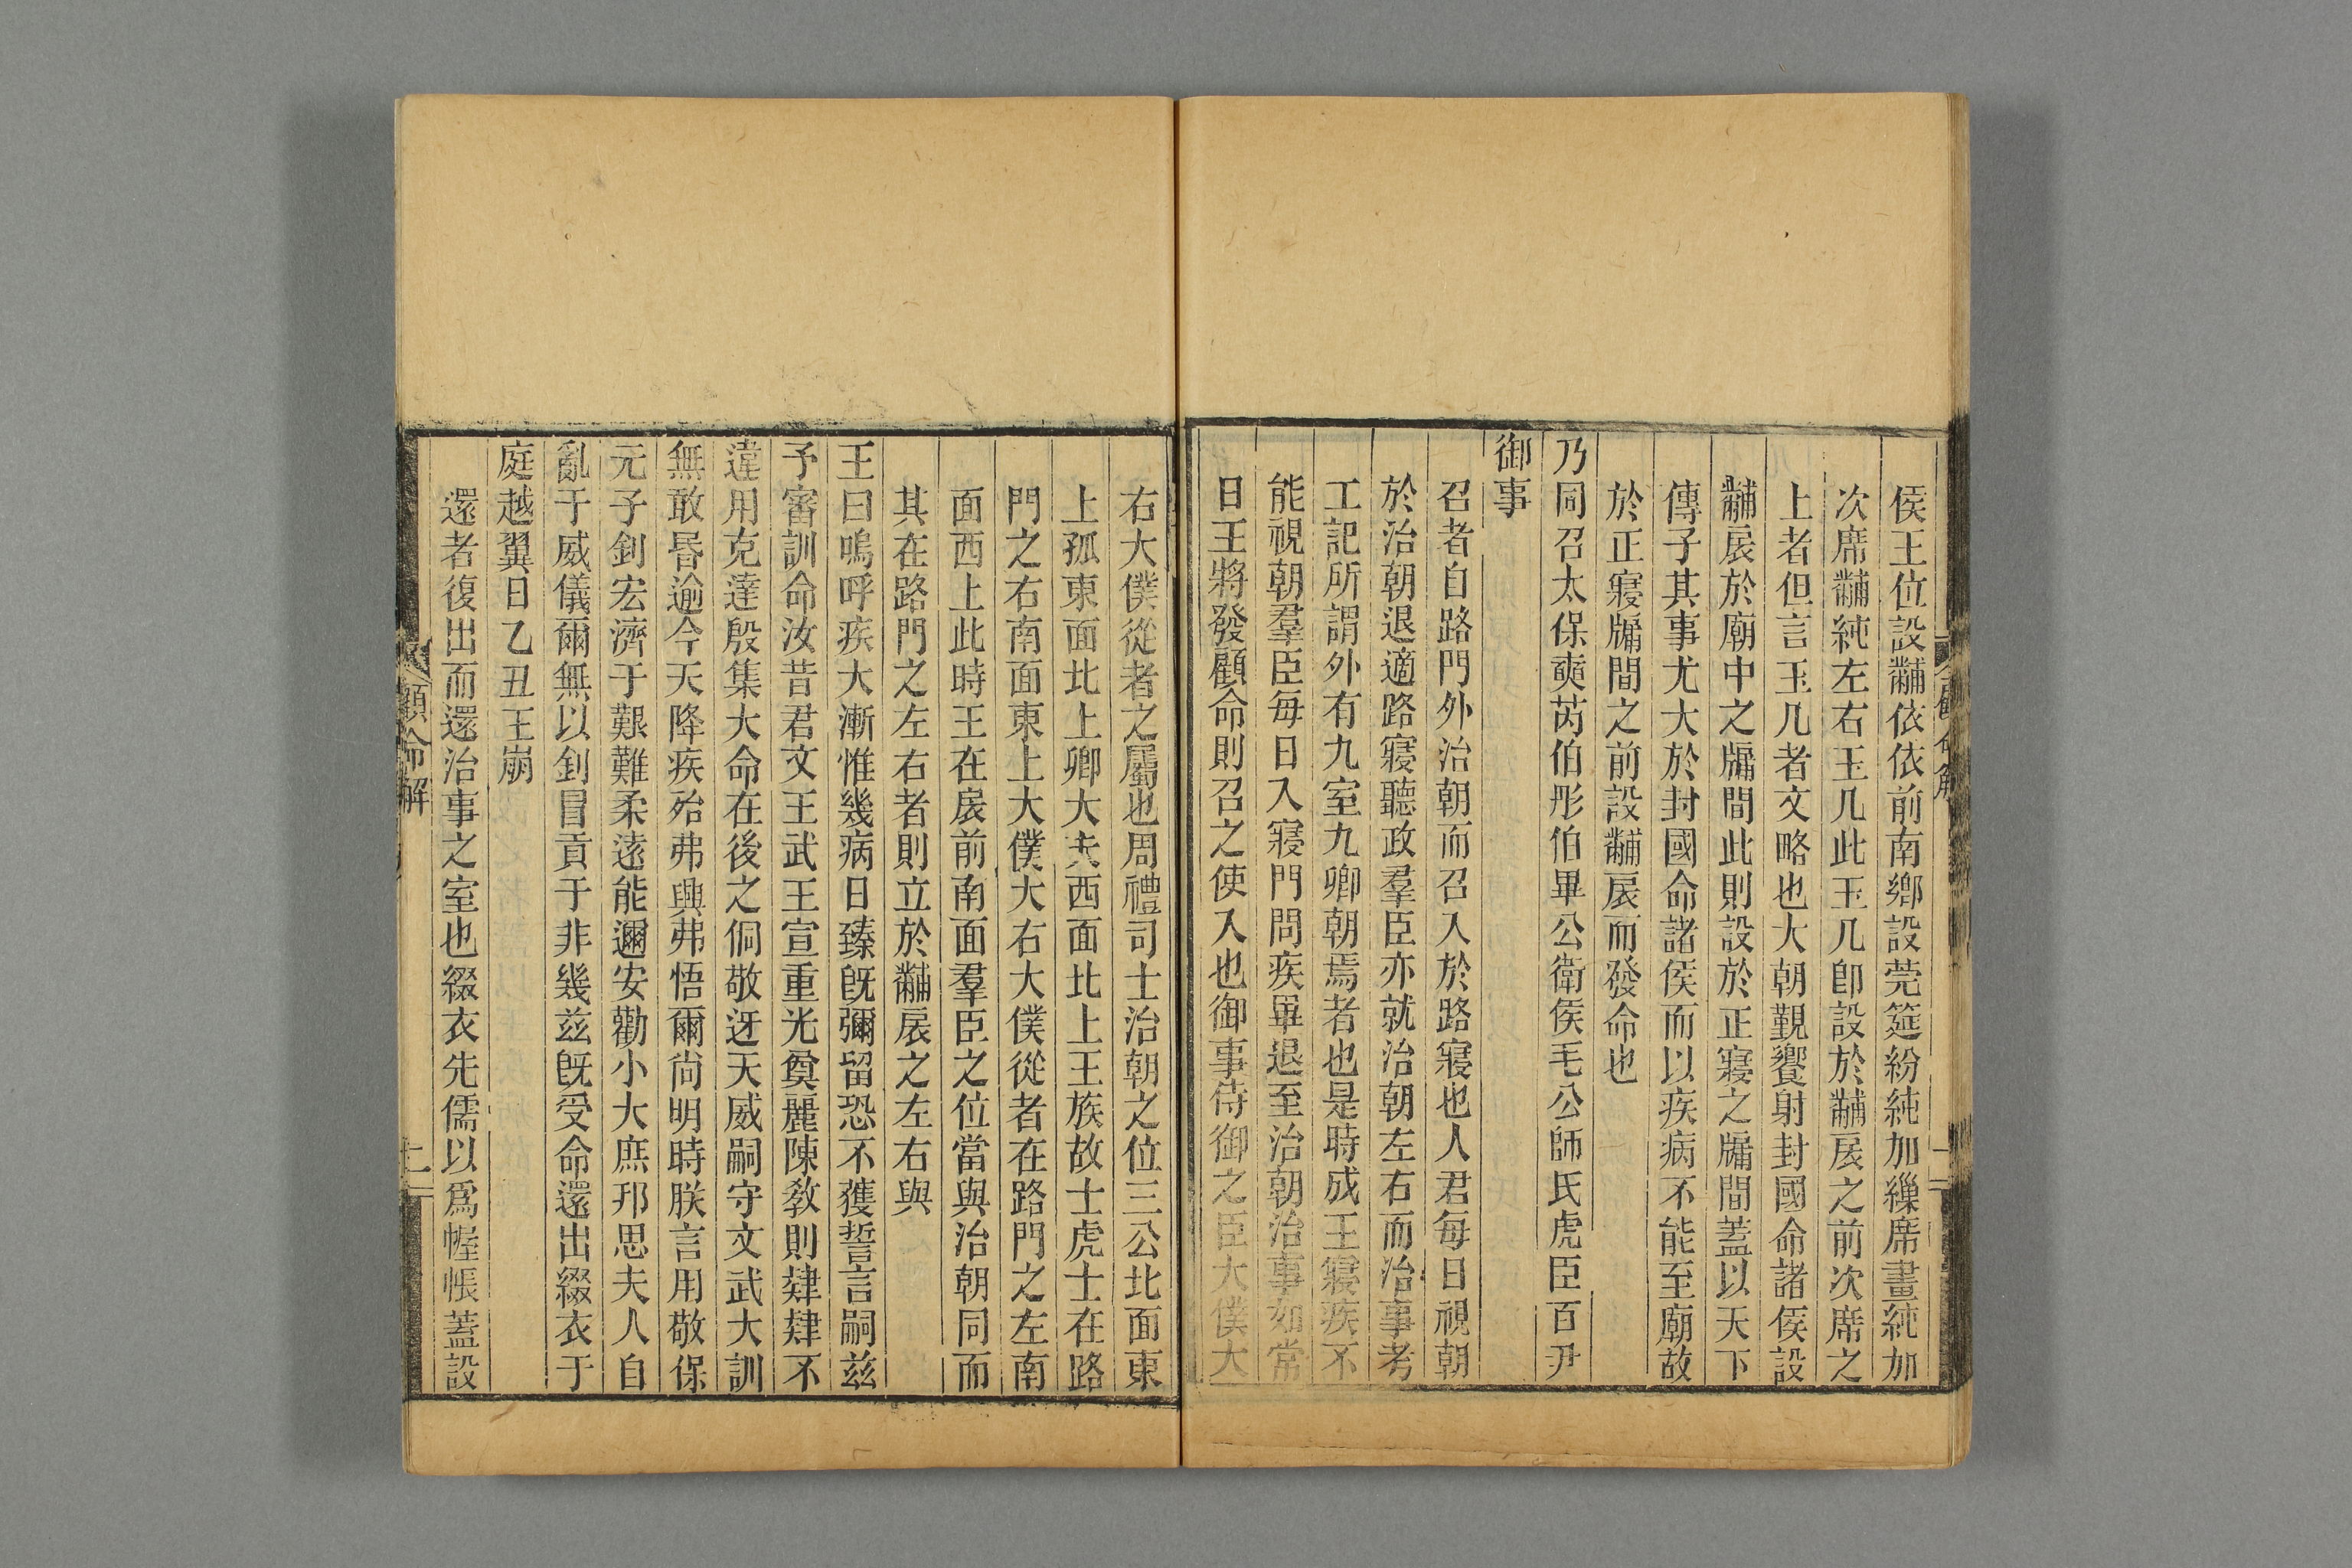 侯王位設黼依依前南鄉設莞筵紛純加繅席畫純加
次席黼純左右玉几此玉几卽設於黼扆之前次席之
上者但言玉几者文略也大朝覲饗射封國命諸侯設
黼扆於廟中之牖間此則設於正寢之牖間蓋以天下
傳子其事尤大於封國命諸侯而以疾病不能至廟故
於正寢牖間之前設黼扆而發命也
乃同召太保奭芮伯彤伯畢公衛侯毛公師氏虎臣百尹
御事
召者自路門外治朝而召入於路寢也人君每日視朝
於治朝退適路寢聽政羣臣亦就治朝左右而治事考
工記所謂外有九室九卿朝焉者也是時成王寢疾不
能視朝羣臣每日入寢門問疾畢退至治朝治事如常
日王將發顧命則召之使入也御事侍御之臣大僕大
右大僕從者之屬也周禮司士治朝之位三公北面東
上孤東面北上卿大夫西面北上王族故士虎士在路
門之右南面東上大僕大右大僕從者在路門之左南
面西上此時王在扆前南面羣臣之位當與治朝同而
其在路門之左右者則立於黼扆之左右與
王曰嗚呼疾大漸惟幾病日臻旣彌留恐不獲誓言嗣兹
予審訓命汝昔君文王武王宣重光奠麗陳敎則肄肄不
違用克達殷集大命在後之侗敬迓天威嗣守文武大訓
無敢昬逾今天降疾殆弗興弗悟爾尙明時朕言用敬保
元子釗宏濟于艱難柔遠能邇安勸小大庶邦思夫人自
亂于威儀爾無以釗冒貢于非幾兹旣受命還出綴衣于
庭越翼日乙丑王崩
還者復出而還治事之室也綴衣先儒以爲幄帳蓋設
顧命解